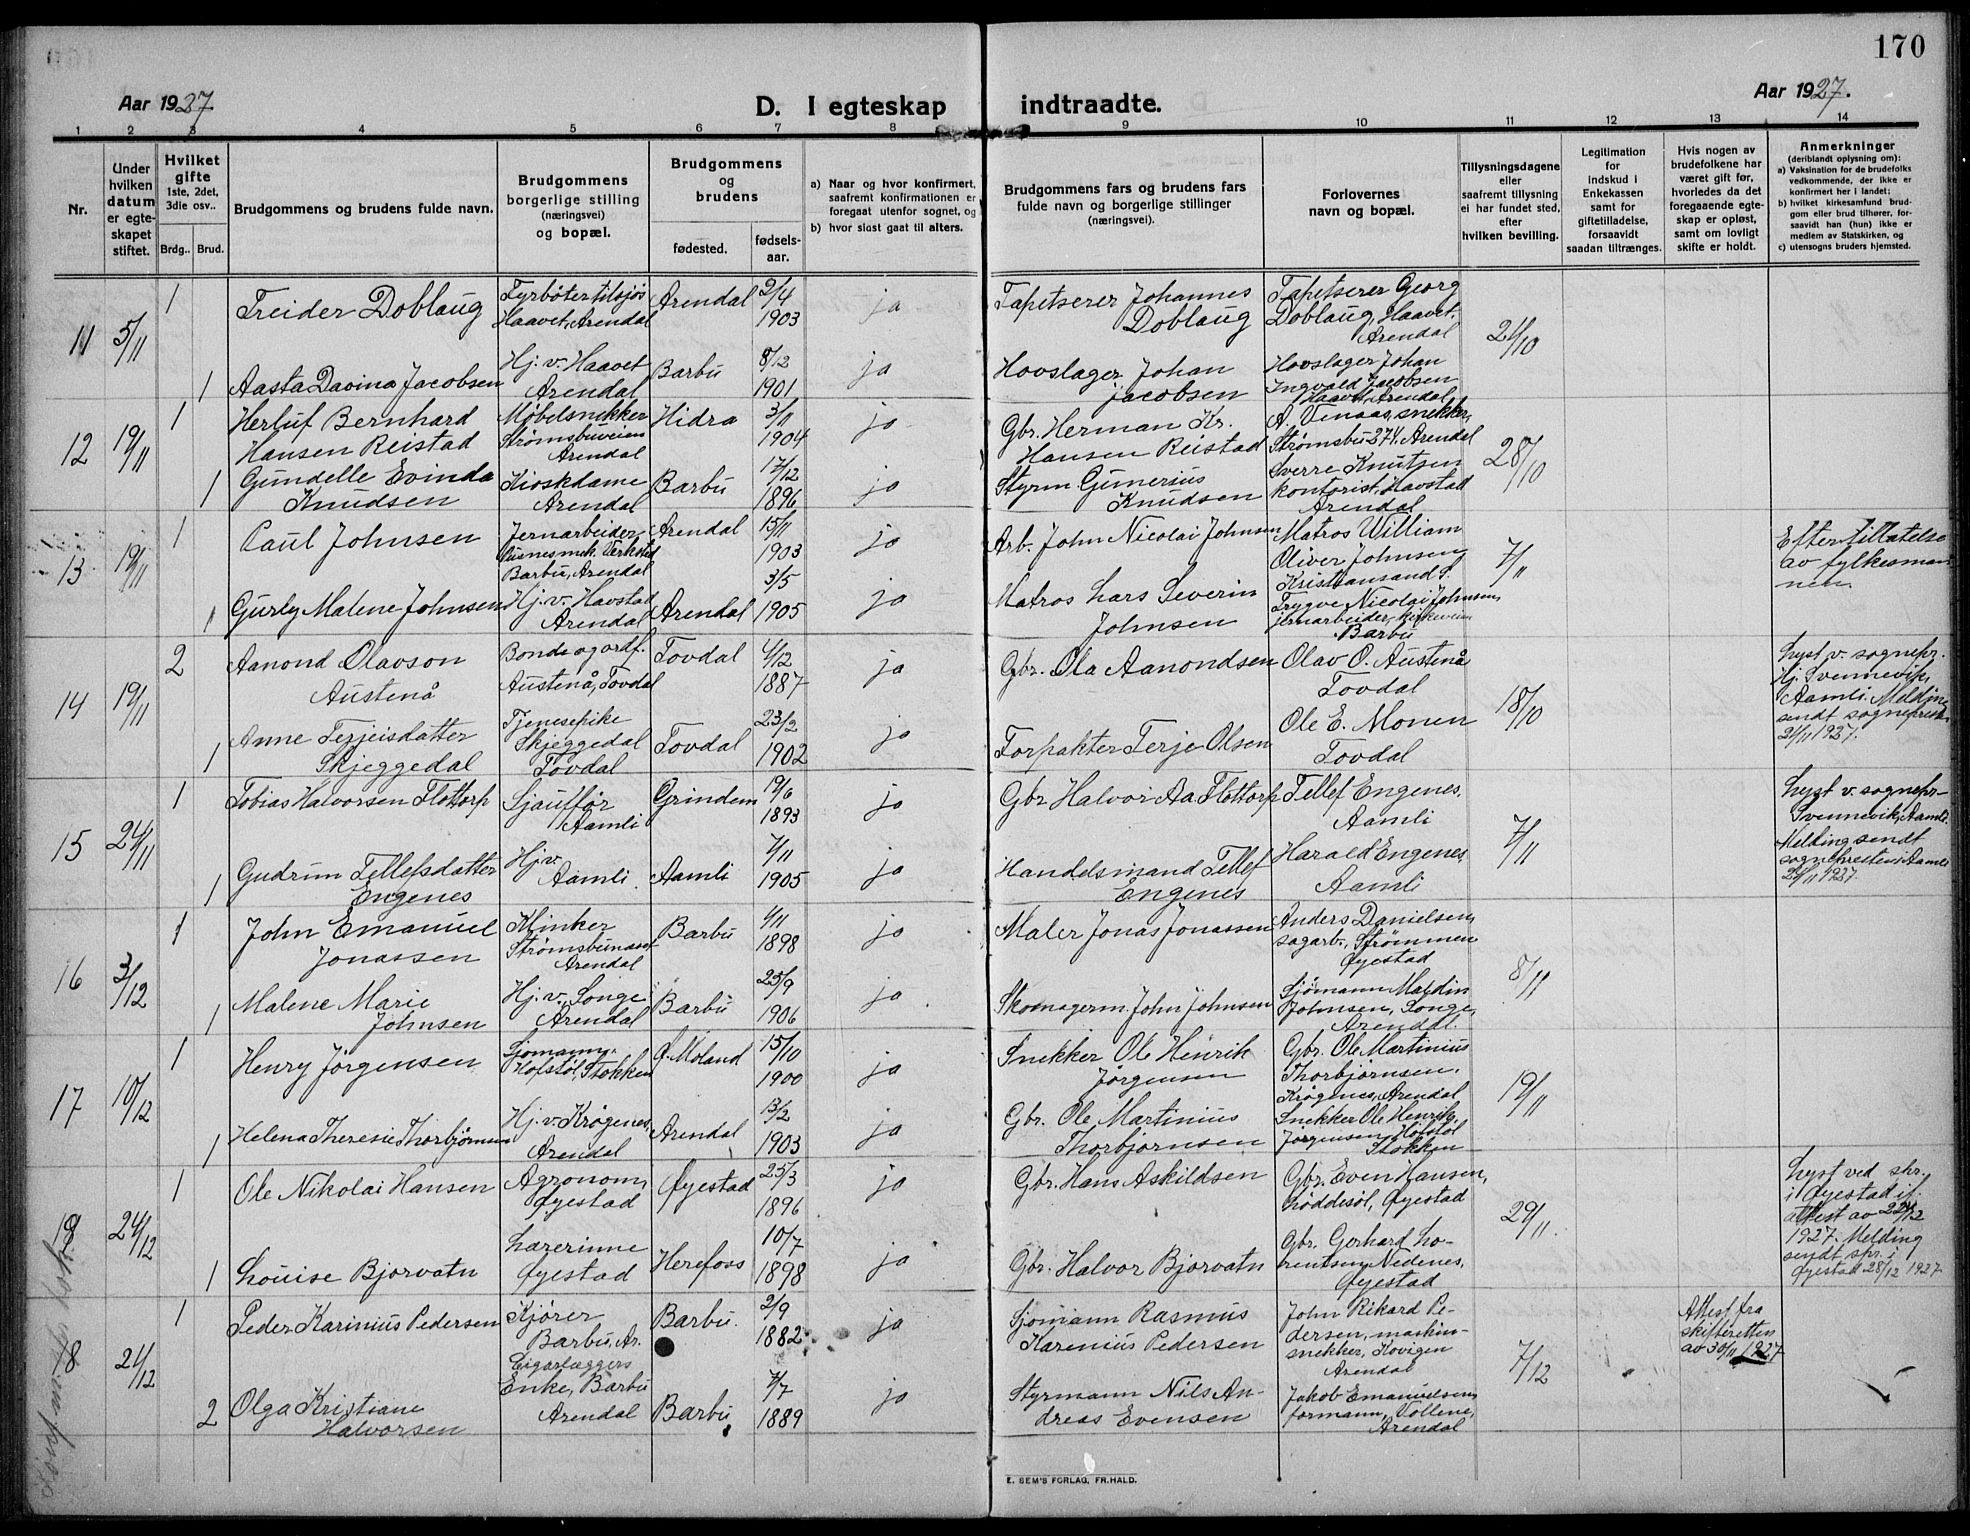 170
Aar 1927
D. I egteskap indtraadte.
Aar 1927.
1 2 3 4 5 6 7 8 9 10 11 12 13 14
Nr.
Under hvilken datum er egteskapet stiftet.
Hvilket gifte 1ste, 2det, 3die osv..
Brdg.. Brud.
Brudgommens og brudens fulde navn.
Brudgommens borgerlige stilling (næringsvei) og bopæl.
Brudgommens og brudens
fødested. fødselsaar.
a) Naar og hvor konfirmert, saafremt konfirmationen er foregaat utenfor sognet, og
b) hvor sidst gaat til alters.
Brudgommens fars og brudens fars fulde navn og borgerlige stillinger (næringsvei).
Forlovernes navn og bopæl.
Tillysningsdagene eller saafremt tillysning ei har fundet sted, efter hvilken bevilling.
Legitimation for indskud i Enkekassen samt for giftetilladelse, forsaavidt saadan tiltrænges.
Hvis nogen av brudefolkene har været gift før, hvorledes da det foregaaende egteskap er opløst, samt om lovligt skifte er holdt.
Anmerkninger (deriblandt oplysning om): a) Vaksination for de brudefolks vedkommende, der ikke er konfirmert her i landet; b) hvilket kirkesamfund brudgom eller brud tilhører, forsaavidt han (hun) ikke er medlem av Statskirken, og c) utensogns bruders hjemsted.
11 5/11 1 Treider Doblaug Fyrbøter tilsjøs Haavet, Arendal Arendal 2/4 1903 ja Tapetserer Johannes Doblaug Tapetserer Georg Doblaug, Haavet, Arendal 24/10
1 Aasta Davina Jacobsen Hj. v. Haavet Arendal Barbu 8/12 1901 ja Hovslager Johan Jacobsen Hovslager Johan Ingvald Jacobsen Haavet, Arendal
12 19/11 1 Herluf Bernhard Hansen Reistad Møbelsnekker Strømsbuveien Arendal Hidra 3/11 1904 ja Gbr. Herman Kr. Hansen Reistad A. Vinaas, snekker, Strømsbu 274, Arendal 28/10
1 Gundelle Evinda Knudsen Kioskdame Arendal Barbu 17/12 1896 ja Styrm. Gunerius Knudsen Sverre Knutsen kontorist, Havstad Arendal
13 19/11 1 Paul Johnsen Jernarbeider, Pusnes mek. Verksted Barbu, Arendal Arendal 15/11 1903 ja Arb. John Nicolai Johnsen Matros William Oliver Johnsen Kristiansand S. 7/11 Efter tillatelse av fylkesmannen
1 Gurly Malene Johnsen Hj. v. Havstad Arendal Arendal 3/5 1905 ja Matros Lars Severin Johnsen Trygve Nicolai Johnsen, jernarbeider, Barbu
14 19/11 2 Aanond Olavson Austenå Bonde og ordf. Austenå, Tovdal Tovdal 4/12 1887 ja Gbr. Ola Aanondsen Olav O. Austenå Tovdal 18/10 Lyst v. sognepr. Hj. Svennevik, Aamli. Melding sendt sognepresten 21/11 1927.
1 Anne Terjeisdatter Skjeggedal Tjenesepike Skjeggedal Tovdal Tovdal 23/2 1902 ja Forpakter Terje Olsen Ole E. Monen Tovdal
15 24/11 1 Tobias Halvorsen Flottorp Sjauffør Aamli Grindem 19/6 1893 ja Gbr Halvor Aa Flottorp Tellef Engenes, Aamli 7/11 Lyst v. sognepr. Svennevik, Aamli. Melding sendt sognepresten i Aamli 26/11 1927.
1 Gudrun Tellefsdatter Engenes Hj. v. Aamli Aamli 7/11 1905 ja Handelsmand Tellef Engenes Harald Engenes, Aamli
16 3/12 1 John Emanuel Jonassen Klinker Arendal Barbu 4/11 1898 ja Maler Jonas Jonassen Anders Danielsen, sagarb., Strømmen Øyestad 8/11
1 Malene Marie Johnsen Hj. v. Songe Arendal Barbu 25/9 1906 ja Skomagerm. John Johnsen Sjømann Maldin Johnsen, Songe, Arendal.
17 10/12 1 Henry Jørgensen Sjømann, Hofstøl, Stokken Ø. Moland 15/10 1900 ja Snekker Ole Henrik Jørgensen Gbr. Ole Martinius Thorbjørnsen, Krøgenes, Arendal 19/11
1 Helena Theresie Thorbjørnsen Hj. v. Krøgenes, Arendal Arendal 13/2 1903 ja Gbr. Ole Martinius Thorbjørnsen Snekker Ole Henrik Jørgensen, Hofstøl Stokken
19 24/12 1 Ole Nikolai Hansen Agronom, Øyestad Øyestad 25/3 1896 ja Gbr. Hans Askildsen Gbr. Even Hansen, Løddesøl, Øyestad 29/11. Lyst ved spr. i Øyestad if. attest av 22/12 1927. Melding sendt spr. i Øyestad 28/12 1927.
1 Louise Bjorvatn Lærerinne Øyestad Herefoss 10/7 1898 ja Gbr. Halvor Bjorvatn Gbr. Gerhard Lorentsen, Nedenes, Øyestad
18 21/12 1 Peder Karinius Pedersen Kjører Barbu, Ar. Barbu. 2/9 1882 ja Sjømann Rasmus Karenius Pedersen John Rikard Pedersen, maskinsnekker, Kovigen Arendal 7/12 Attest fra skifteretten av 30/11 1927
2 Olga Kristiane Halvorsen Cigarlæggers Enke, Barbu Arendal Barbu 7/7 1889 ja Styrmann Nils Andreas Evensen Jakob Emanuelsen, formann, Tollene, Arendal
E. SEM'S FORLAG, FR.HALD.